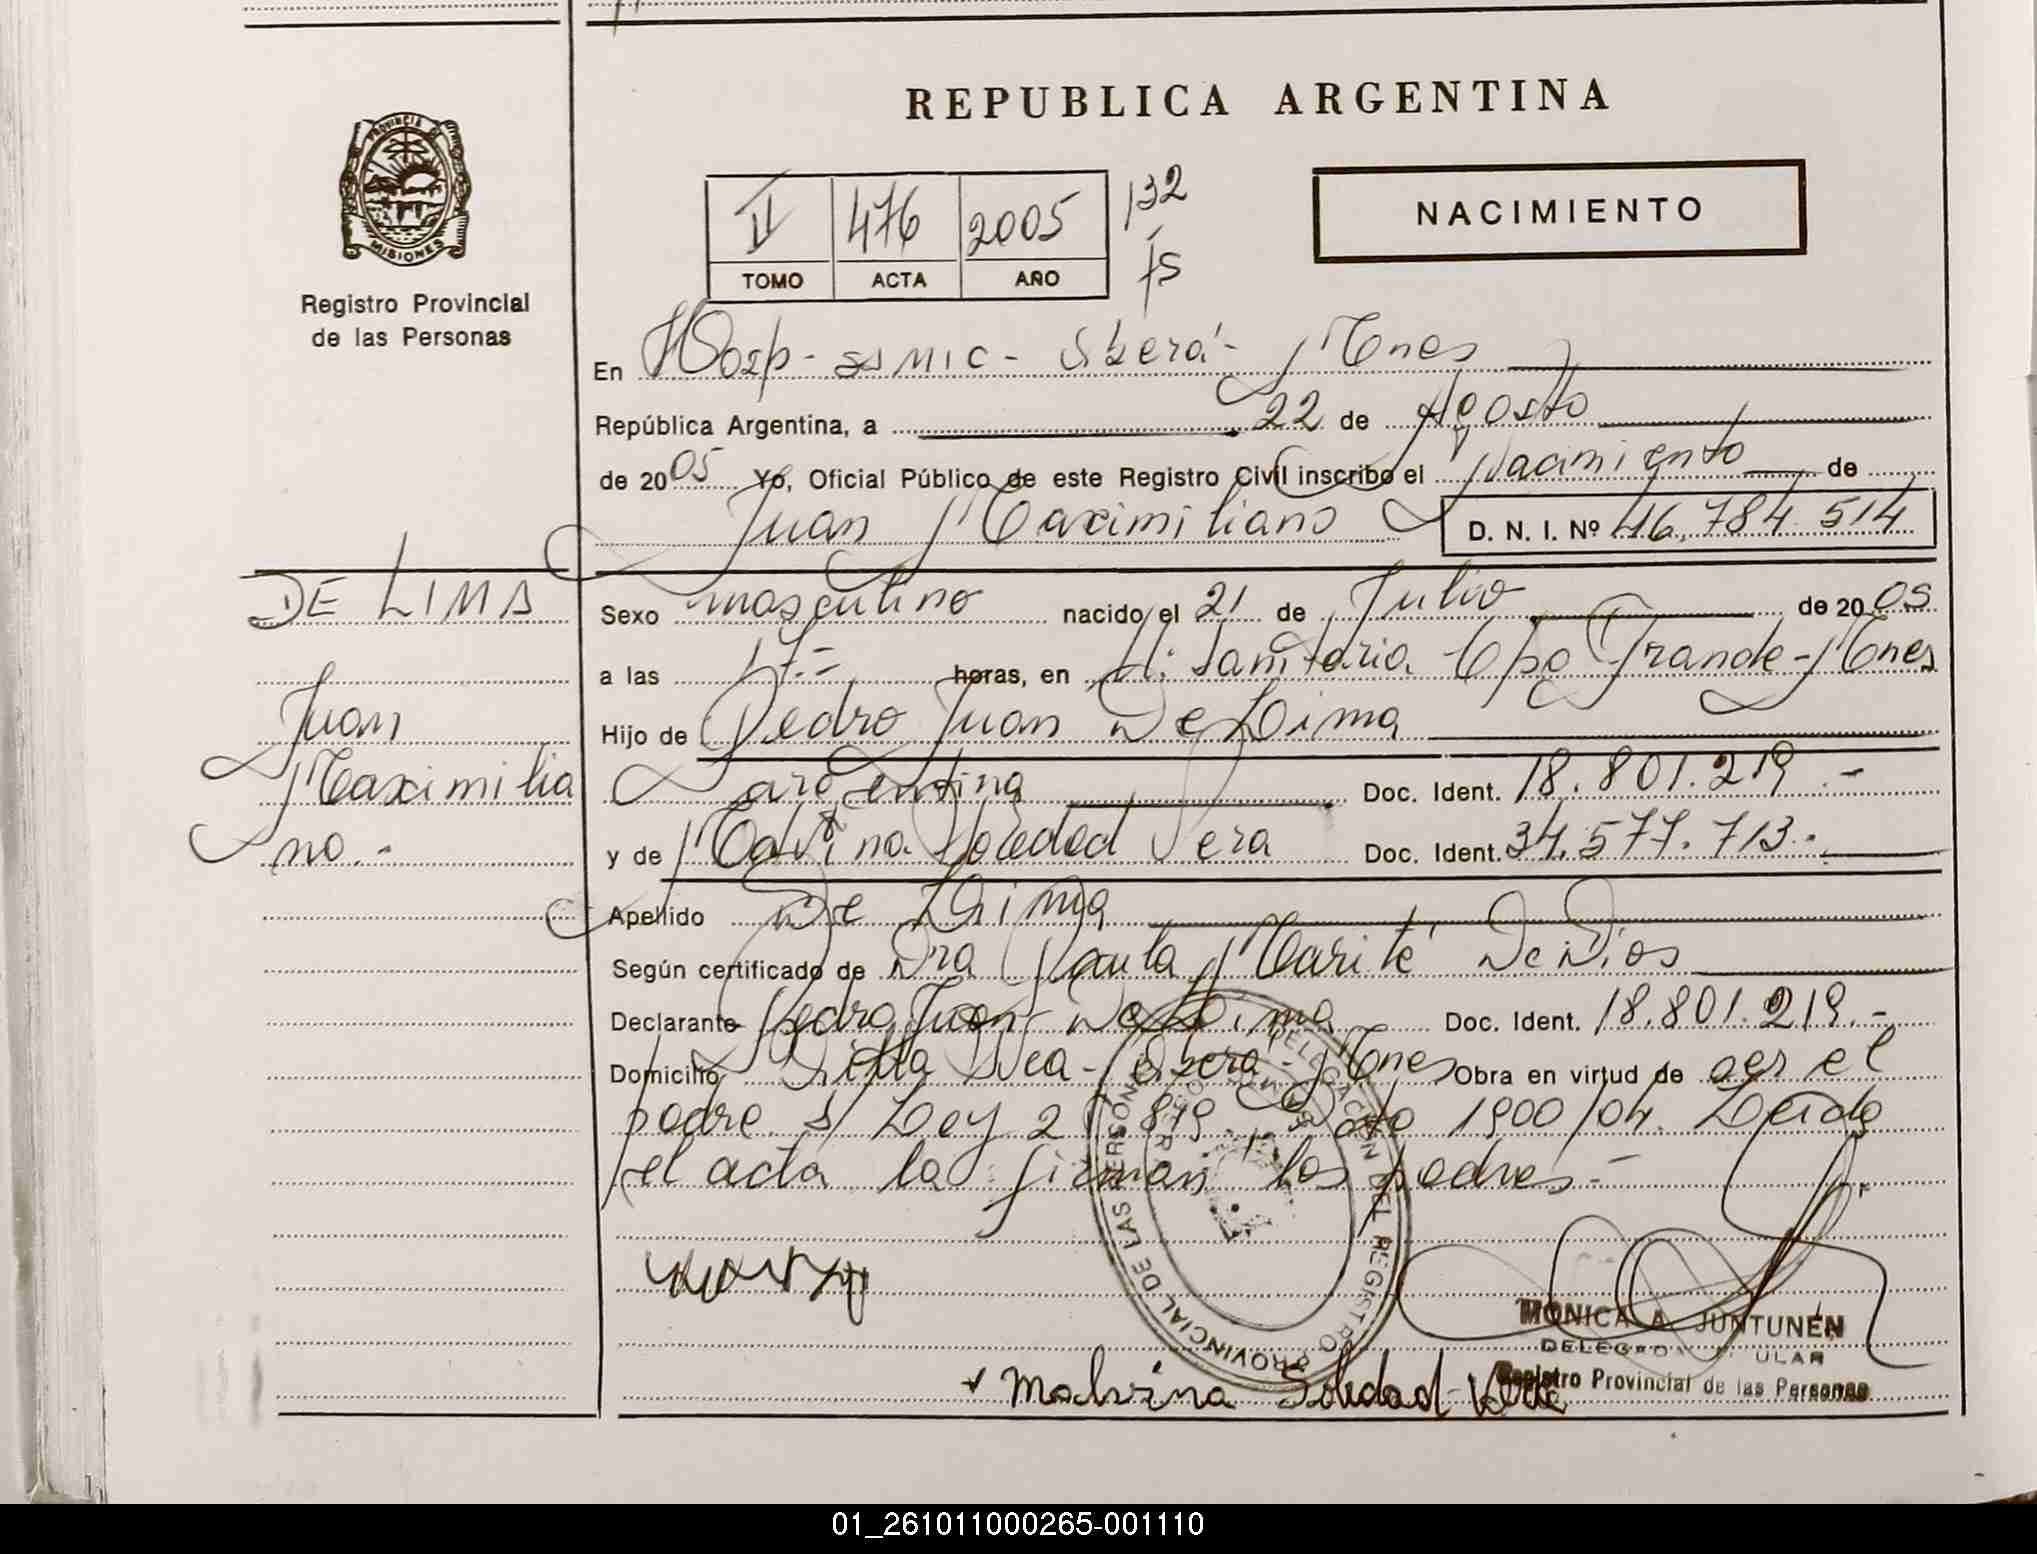 REPUBLICA ARGENTINA
PROVINCIA DE MISIONES
Registro Provincial
de las Personas
II 476 2005 132
TOMO ACTA AÑO fs
NACIMIENTO
En Hosp- SAMIC - Oberá - Mnes
República Argentina, a 22 de Agosto
de 2005 Yo, Oficial Público de este Registro Civil inscribo el Nacimiento de
Juan Maximiliano D. N. I. Nº 46.784.514
DE LIMA
Juan
Maximilia
no.-
Sexo masculino nacido el 21 de Julio de 2005
a las 17.= horas, en U. Sanitaria Cpo Grande - Mnes
Hijo de Pedro Juan De Lima
argentina Doc. Ident. 18.801.219.-
y de Malvina Soledad Vera Doc. Ident. 34.577.713.-
Apellido De Lima
Según certificado de Dra Paula Marité De Dios
Declarante Pedro Juan De Lima Doc. Ident. 18.801.219.-
Domicilio Villa Oberá - Mnes Obra en virtud de ser el
padre s/ Ley 2 819 Dto 1900/04. Leida
el acta la firman los padres.-
DELEGACION DEL REGISTRO PROVINCIAL DE LAS PERSONAS
MONICA A. JUNTUNEN
Registro Provincial de las Personas
Malvina Soledad Vera
01_261011000265-001110